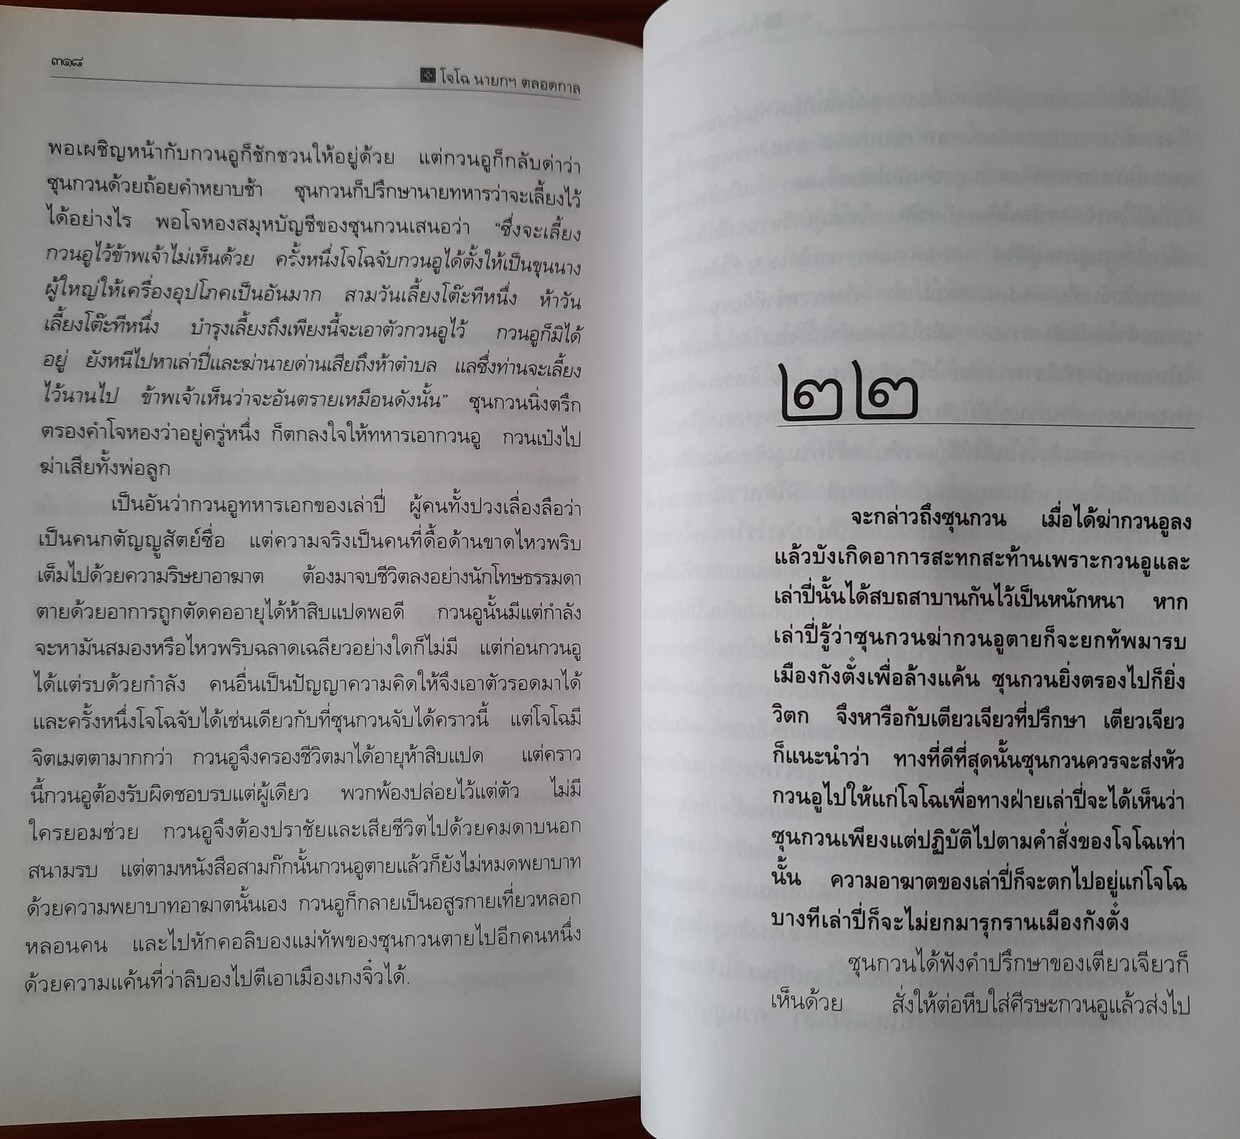 ๓๑๘
โจโฉ นายกฯ ตลอดกาล
พอเผชิญหน้ากับกวนอูก็ชักชวนให้อยู่ด้วย แต่กวนอูก็กลับด่าว่า
ซุนกวนด้วยถ้อยคำหยาบช้า ซุนกวนก็ปรึกษานายทหารว่าจะเลี้ยงไว้
ได้อย่างไร พอโจหองสมุหบัญชีของซุนกวนเสนอว่า “ซึ่งจะเลี้ยง
กวนอูไว้ข้าพเจ้าไม่เห็นด้วย ครั้งหนึ่งโจโฉจับกวนอูได้ตั้งให้เป็นขุนนาง
ผู้ใหญ่ให้เครื่องอุปโภคเป็นอันมาก สามวันเลี้ยงโต๊ะทีหนึ่ง ห้าวัน
เลี้ยงโต๊ะทีหนึ่ง บำรุงเลี้ยงถึงเพียงนี้จะเอาตัวกวนอูไว้ กวนอูก็มิได้
อยู่ ยังหนีไปหาเล่าปี่และฆ่านายด่านเสียถึงห้าตำบล แลซึ่งท่านจะเลี้ยง
ไว้นานไป ข้าพเจ้าเห็นว่าจะอันตรายเหมือนดังนั้น” ซุนกวนนิ่งตรึก
ตรองคำโจหองว่าอยู่ครู่หนึ่ง ก็ตกลงใจให้ทหารเอากวนอู กวนเป๋งไป
ฆ่าเสียทั้งพ่อลูก
เป็นอันว่ากวนอูทหารเอกของเล่าปี่ ผู้คนทั้งปวงเลื่องลือว่า
เป็นคนกตัญญูสัตย์ซื่อ แต่ความจริงเป็นคนที่ดื้อด้านขาดไหวพริบ
เต็มไปด้วยความริษยาอาฆาต ต้องมาจบชีวิตลงอย่างนักโทษธรรมดา
ตายด้วยอาการถูกตัดคออายุได้ห้าสิบแปดพอดี กวนอูนั้นมีแต่กำลัง
จะหามันสมองหรือไหวพริบฉลาดเฉลียวอย่างใดก็ไม่มี แต่ก่อนกวนอู
ได้แต่รบด้วยกำลัง คนอื่นเป็นปัญญาความคิดให้จึงเอาตัวรอดมาได้
และครั้งหนึ่งโจโฉจับได้เช่นเดียวกับที่ซุนกวนจับได้คราวนี้ แต่โจโฉมี
จิตเมตตามากกว่า กวนอูจึงครองชีวิตมาได้อายุห้าสิบแปด แต่คราว
นี้กวนอูต้องรับผิดชอบรบแต่ผู้เดียว พวกพ้องปล่อยไว้แต่ตัว ไม่มี
ใครยอมช่วย กวนอูจึงต้องปราชัยและเสียชีวิตไปด้วยคมดาบนอก
สนามรบ แต่ตามหนังสือสามก๊กนั้นกวนอูตายแล้วก็ยังไม่หมดพยาบาท
ด้วยความพยาบาทอาฆาตนั้นเอง กวนอูก็กลายเป็นอสูรกายเที่ยวหลอก
หลอนคน และไปหักคอลิบองแม่ทัพของซุนกวนตายไปอีกคนหนึ่ง
ด้วยความแค้นที่ว่าลิบองไปตีเอาเมืองเกงจิ๋วได้.
๒๒
จะกล่าวถึงซุนกวน เมื่อได้ฆ่ากวนอูลง
แล้วบังเกิดอาการสะทกสะท้านเพราะกวนอูและ
เล่าปี่นั้นได้สบถสาบานกันไว้เป็นหนักหนา หาก
เล่าปี่รู้ว่าซุนกวนฆ่ากวนอูตายก็จะยกทัพมารบ
เมืองกังตั๋งเพื่อล้างแค้น ซุนกวนยิ่งตรองไปก็ยิ่ง
วิตก จึงหารือกับเตียวเจียวที่ปรึกษา เตียวเจียว
ก็แนะนำว่า ทางที่ดีที่สุดนั้นซุนกวนควรจะส่งหัว
กวนอูไปให้แก่โจโฉเพื่อทางฝ่ายเล่าปี่จะได้เห็นว่า
ซุนกวนเพียงแต่ปฏิบัติไปตามคำสั่งของโจโฉเท่า
นั้น ความอาฆาตของเล่าปี่ก็จะตกไปอยู่แก่โจโฉ
บางทีเล่าปี่ก็จะไม่ยกมารุกรานเมืองกังตั๋ง
ซุนกวนได้ฟังคำปรึกษาของเตียวเจียวก็
เห็นด้วย สั่งให้ต่อหีบใส่ศีรษะกวนอูแล้วส่งไป